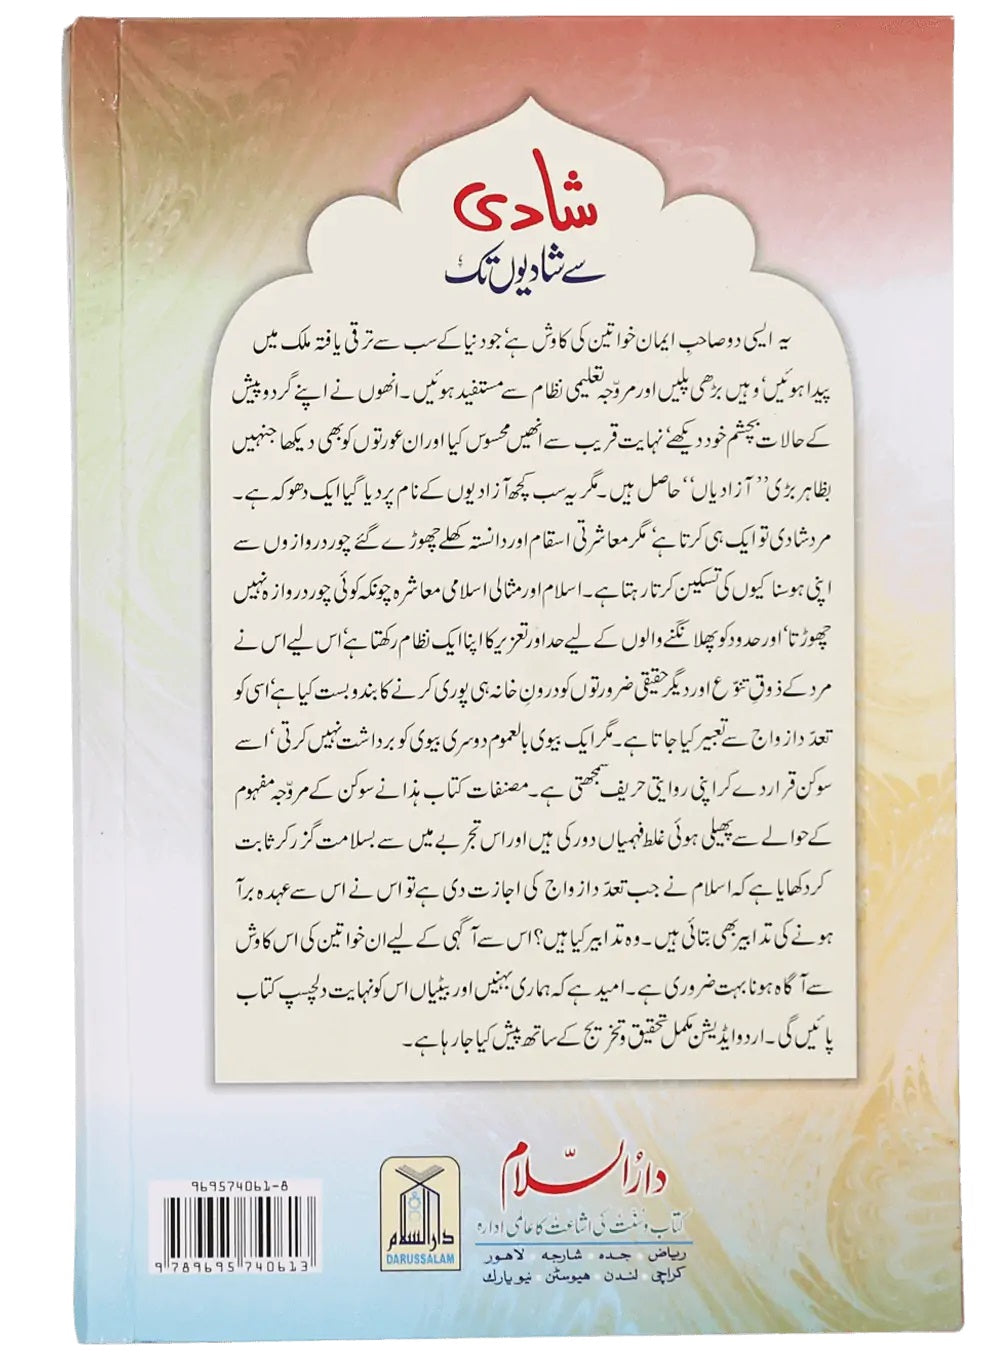 شادی
سے شادیوں تک
یہ ایسی دو صاحبِ ایمان خواتین کی کاوش ہے‘ جو دنیا کے سب سے ترقی یافتہ ملک میں
پیدا ہوئیں‘ وہیں بڑھی پلیں اور مروّجہ تعلیمی نظام سے مستفید ہوئیں۔ انھوں نے اپنے گردوپیش
کے حالات بچشم خود دیکھے‘ نہایت قریب سے انھیں محسوس کیا اور ان عورتوں کو بھی دیکھا جنہیں
بظاہر بڑی ’’آزادیاں‘‘ حاصل ہیں۔ مگر یہ سب کچھ آزادیوں کے نام پر دیا گیا ایک دھوکہ ہے۔
مرد شادی تو ایک ہی کرتا ہے‘ مگر معاشرتی اسقام اور دانستہ کھلے چھوڑے گئے چور دروازوں سے
اپنی ہوسناکیوں کی تسکین کرتا رہتا ہے۔ اسلام اور مثالی اسلامی معاشرہ چونکہ کوئی چور دروازہ نہیں
چھوڑتا‘ اور حدود کو پھلانگنے والوں کے لیے حد اور تعزیر کا اپنا ایک نظام رکھتا ہے‘ اس لیے اس نے
مرد کے ذوقِ تنوّع اور دیگر حقیقی ضرورتوں کو درونِ خانہ ہی پوری کرنے کا بندوبست کیا ہے‘ اسی کو
تعدّد ازواج سے تعبیر کیا جاتا ہے۔ مگر ایک بیوی بالعموم دوسری بیوی کو برداشت نہیں کرتی‘ اسے
سوکن قرار دے کر اپنی روایتی حریف سمجھتی ہے۔ مصنفات کتاب ہذا نے سوکن کے مروّجہ مفہوم
کے حوالے سے پھیلی ہوئی غلط فہمیاں دور کی ہیں اور اس تجربے میں سے بسلامت گزر کر ثابت
کر دکھایا ہے کہ اسلام نے جب تعدّد ازواج کی اجازت دی ہے تو اس نے اس سے عہدہ برآ
ہونے کی تدابیر بھی بتائی ہیں۔ وہ تدابیر کیا ہیں؟ اس سے آگہی کے لیے ان خواتین کی اس کاوش
سے آگاہ ہونا بہت ضروری ہے۔ امید ہے کہ ہماری بہنیں اور بیٹیاں اس کو نہایت دلچسپ کتاب
پائیں گی۔ اردو ایڈیشن مکمل تحقیق و تخریج کے ساتھ پیش کیا جا رہا ہے۔
دارُالسّلام
کتاب و سُنّت کی اشاعت کا عالمی ادارہ
ریاض • جدہ • شارجہ • لاهور
کراچی • لندن • هیوسٹن • نیو یارك
دارالسلام
DARUSSALAM
969574061-8
9 789695 740613